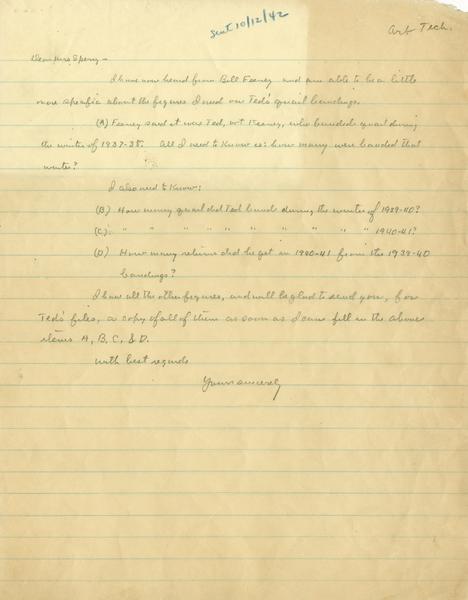 Sent 10/12/42
Art Tech.
Dear Mrs Sperry –
I have now heard from Bill Feeney and am able to be a little
more specific about the figures I need on Ted's quail bandings.
(A) Feeney said it was Ted, not Keeney, who banded quail during
the winter of 1937-38. All I need to know is: how many were banded that
winter?
I also need to know:
(B) How many quail did Ted band during the winter of 1939-40?
(C) " " " " " " " " " " 1940-41?
(D) How many returns did he get in 1940-41 from the 1939-40
bandings?
I have all the other figures, and will be glad to send you, for
Ted's files, a copy of all of them as soon as I can fill in the above
items A, B, C, & D.
With best regards
Yours sincerely